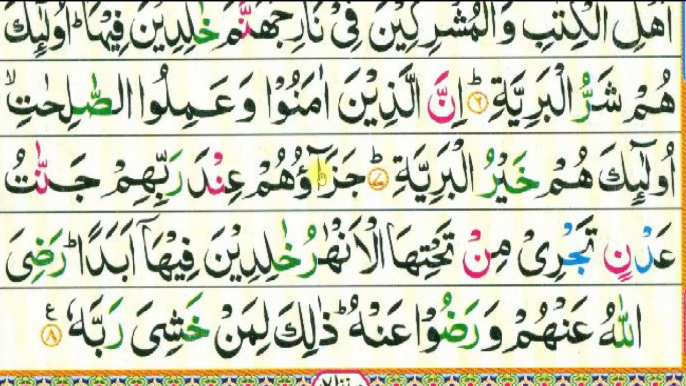 اَهْلِ الْكِتٰبِ وَالْمُشْرِكِيْنَ فِيْ نَارِ جَهَنَّمَ خٰلِدِيْنَ فِيْهَا ؕ اُولٰٓئِكَ
هُمْ شَرُّ الْبَرِيَّةِ ؕ ﴿۶﴾ اِنَّ الَّذِيْنَ اٰمَنُوْا وَعَمِلُوا الصّٰلِحٰتِ ۙ
اُولٰٓئِكَ هُمْ خَيْرُ الْبَرِيَّةِ ؕ ﴿۷﴾ جَزَآؤُهُمْ عِنْدَ رَبِّهِمْ جَنّٰتُ
عَدْنٍ تَجْرِيْ مِنْ تَحْتِهَا الْاَنْهٰرُ خٰلِدِيْنَ فِيْهَاۤ اَبَدًا ؕ رَضِيَ
اللّٰهُ عَنْهُمْ وَرَضُوْا عَنْهُ ؕ ذٰلِكَ لِمَنْ خَشِيَ رَبَّهٗ ﴿۸﴾ ع